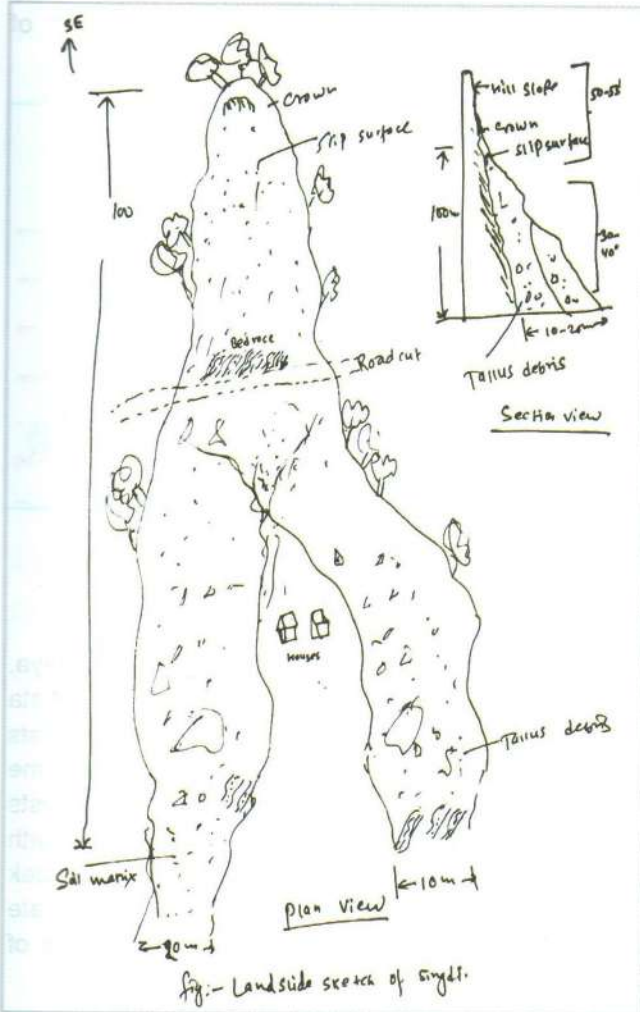 SE
Crown
Slip surface
100
Bedrock
Roadcut
Houses
Tallus debris
Soil matrix
10m
Plan view
Hill slope
Crown
Slip surface
50-55°
100m
40°
10-20m
Tallus debris
Section view
fig:- Landslide sketch of singdi.